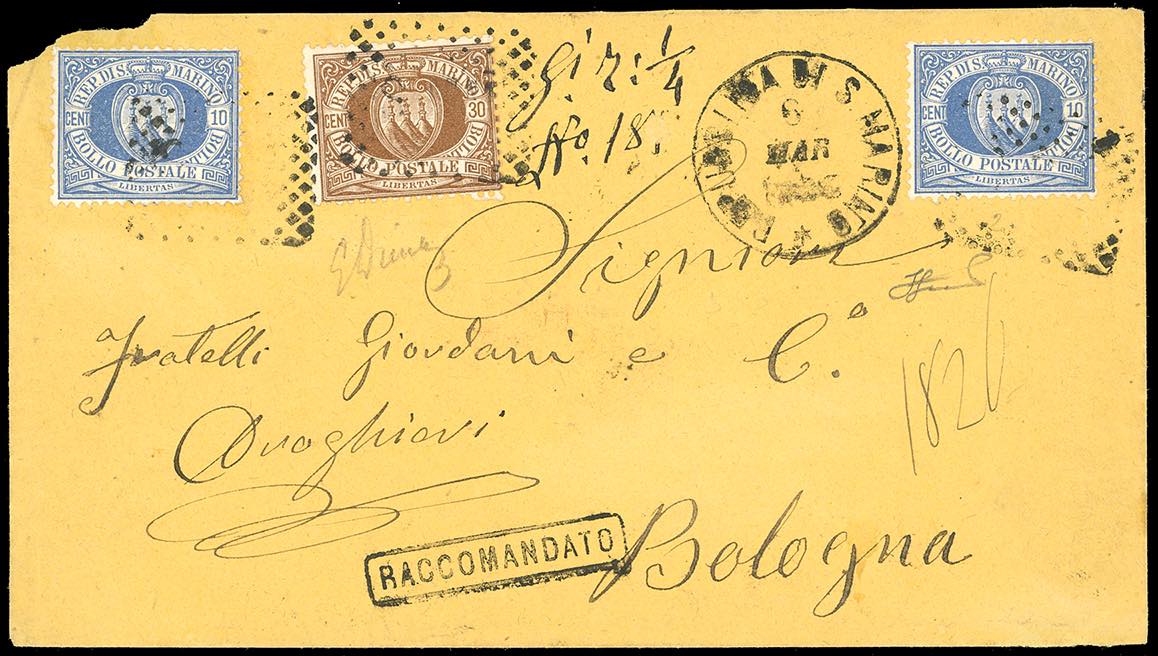 REP. DI S. MARINO
CENT 10
BOLLO POSTALE
LIBERTAS
REP. DI S. MARINO
CENT 30
BOLLO POSTALE
LIBERTAS
Gr. 7: 1/4
No. 18.
REPUBBLICA DI S. MARINO
6
MAR
REP. DI S. MARINO
CENT 10
BOLLO POSTALE
LIBERTAS
Signori
Fratelli Giordani e C.o
Droghieri
RACCOMANDATO
Bologna